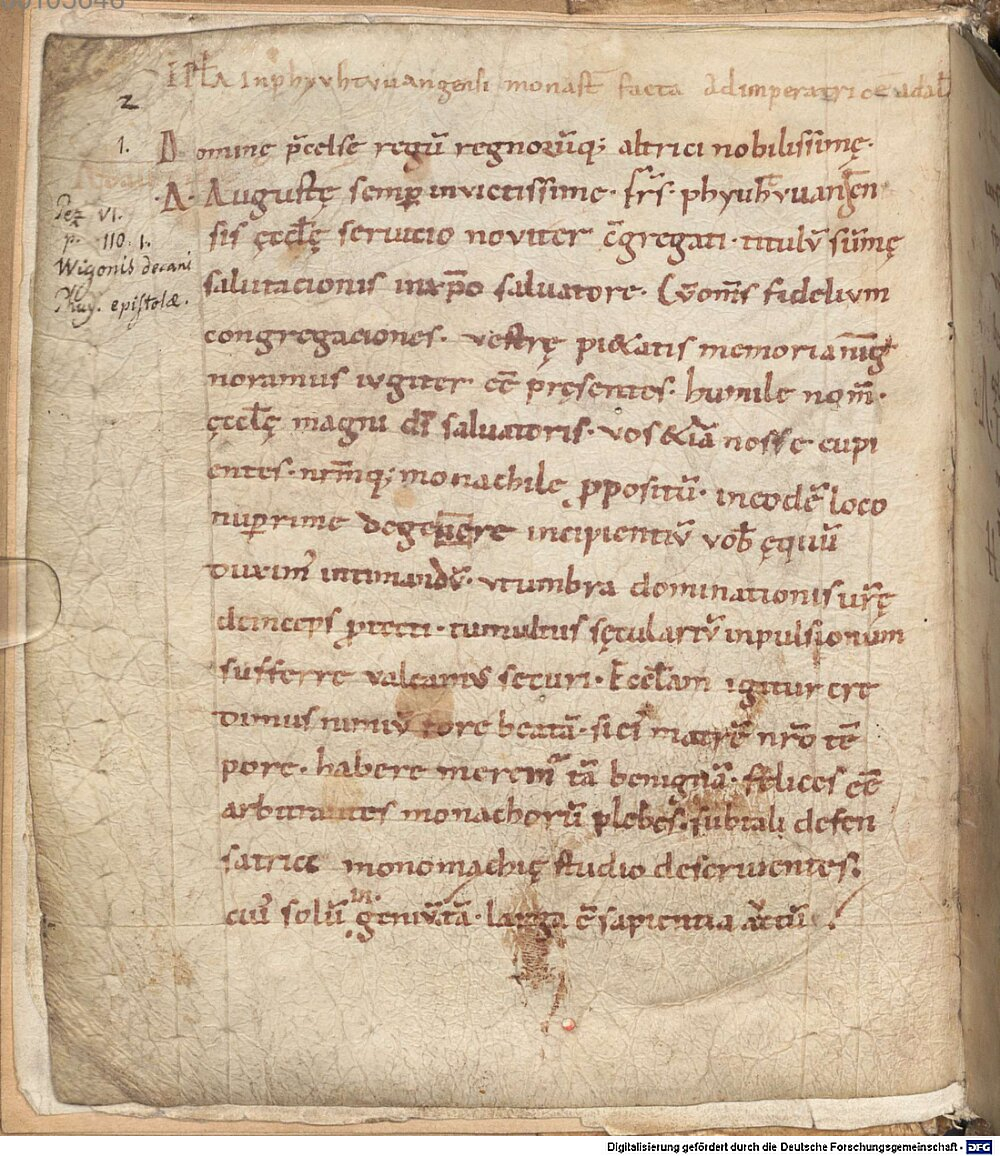 00103646
EPL̄A In phyuhtvuangensi monast̄ facta Ad imperatricē Adalh̄
2
1. Domine p̄celse regū regnorūq; altrici nobilissimę·
·A· Augustę semp̲ inuictissime· fr̄s· phyuh̄vuangen
sis ęccl̄ę seruicio noviter c̄gregati· titulū sūmę
salutacionis in xp̄o saluatore. Cū om̄s fidelivm
congregaciones· vestrę pietatis memoriam ig
noramus ivgiter eē pręsentes· humile nom̄·
ęccl̄ę magni dī saluatoris· vos & iā nosse cupi
entes· nr̄mq; monachile p̲positū· in eodē loco
nup̲rime degere incipientiū vob̄ ęquū
duxim᾽ intimandū· vt umbra dominationis ur̄ę
deinceps p̲tecti· tumultus sęculariū inpulsionum
sufferre valeamus securi· Eccl̄am igitur cre
dimus nimiū fore beatā· si ei matrē nr̄o tē
pore· habere merem᾽ tā benignā· felices eē
arbitrantes monachorū plebes· sub tali defen
satrice monomachię studio deseruientes.
cui᾽ solū in geniū tā· larga ē sapientia
Pez VI.
p. 110. 1.
Wigonis decani
Phy. epistolæ.
Digitalisierung gefördert durch die Deutsche Forschungsgemeinschaft - DFG